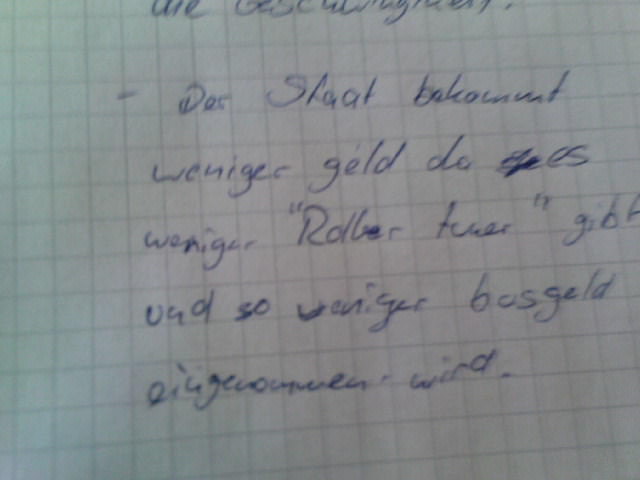 die Geschwindigkeit.
- Der Staat bekommt
weniger geld da es
weniger "Rolber tuer" gibt
und so weniger busgeld
eingenommen wird.